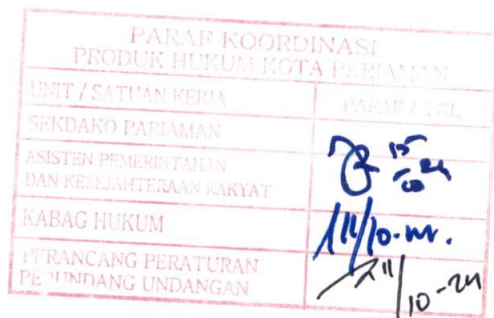 PARAF KOORDINASI
PRODUK HUKUM KOTA PARIAMAN
UNIT / SATUAN KERJA PARAF / TGL
SEKDAKO PARIAMAN
ASISTEN PEMERINTAHAN
DAN KESEJAHTERAAN RAKYAT 15/10 24
KABAG HUKUM 11/10
PERANCANG PERATURAN
PERUNDANG UNDANGAN 11/10-24